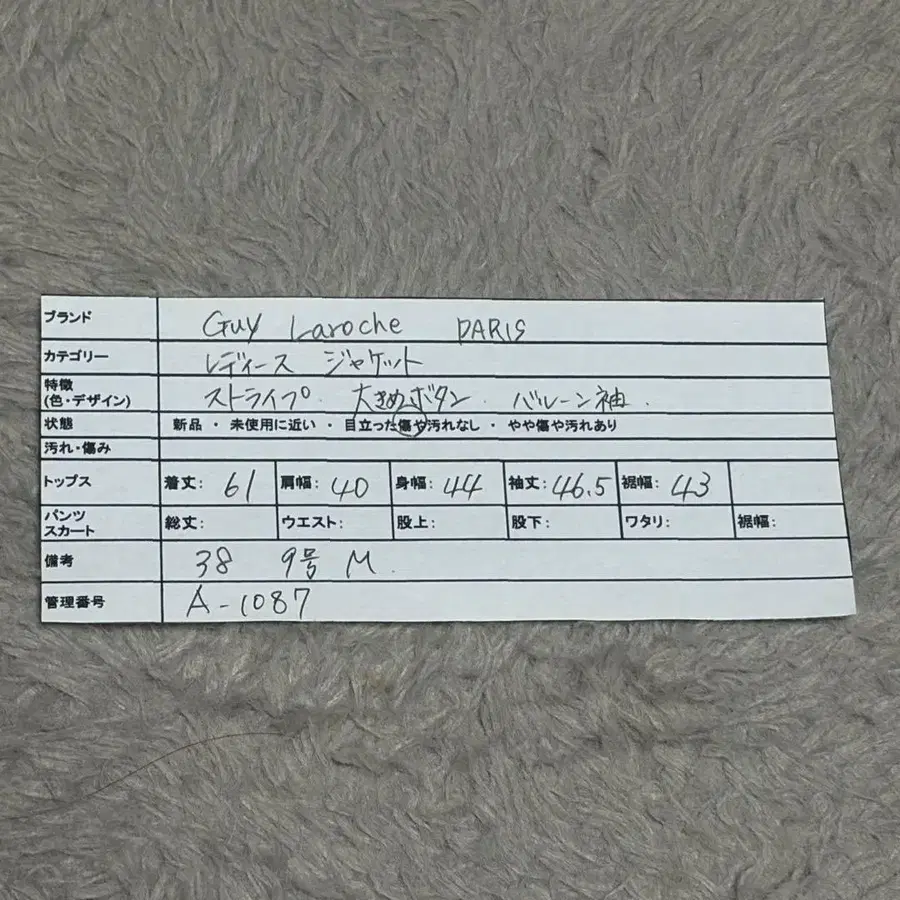 ブランド Guy Laroche PARIS
カテゴリー レディース ジャケット
特徴
(色・デザイン) ストライプ. 大きめボタン. バルーン袖.
状態 新品 ・ 未使用に近い ・ 目立った傷や汚れなし ・ やや傷や汚れあり
汚れ・傷み
トップス 着丈: 61 肩幅: 40 身幅: 44 袖丈: 46.5 裾幅: 43
パンツ
スカート 総丈: ウエスト: 股上: 股下: ワタリ: 裾幅:
備考 38 9号 M.
管理番号 A-1087